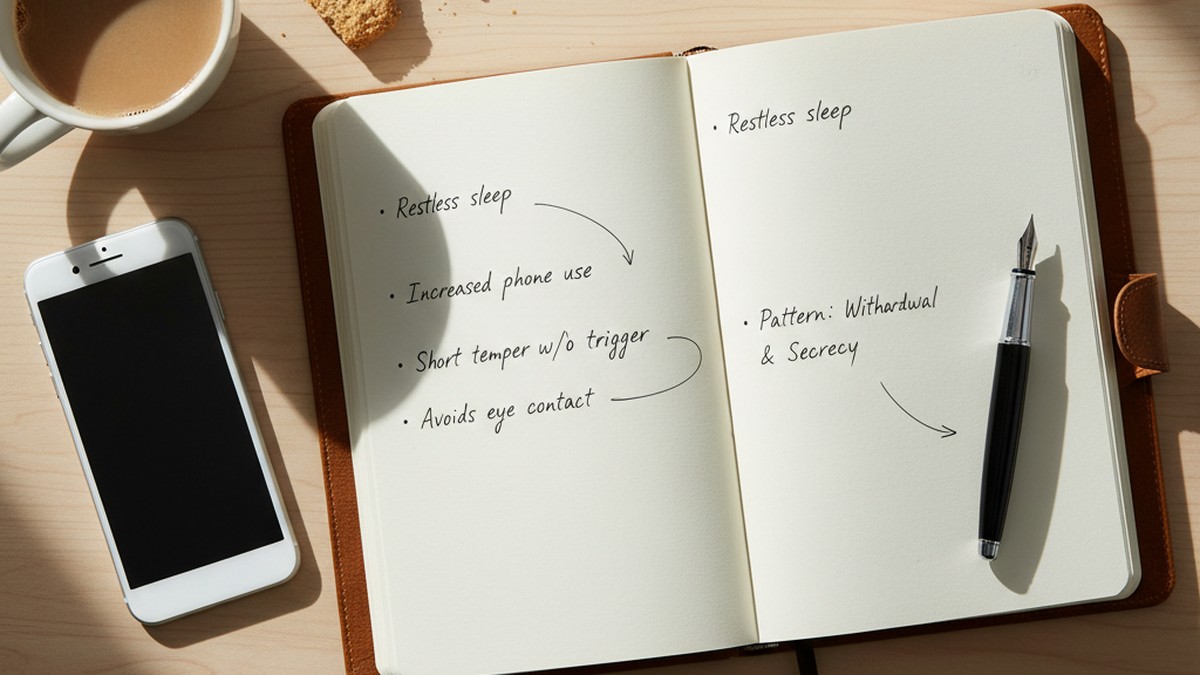 • Restless sleep
• Increased phone use
• Short temper w/o trigger
• Avoids eye contact
• Restless sleep
• Pattern: Withardwal
& Secrecy